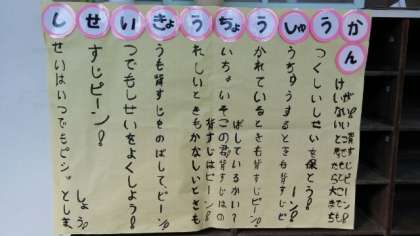 しせいきょうちょうしゅうかん
せいはいつでもピシ。としま
しょう。
すじピーン!
つでもしせいをよくしよう!
うも背すじをのばして、ピーン
れしいときもかなしいときも
背すじはピーン!
いちょいそこの君背すじはの
ばしているかい?
かれているときも背すじピ
ーン!
うちゅうするときも背すじピ
ーン!
つくしいしせいを保とう!